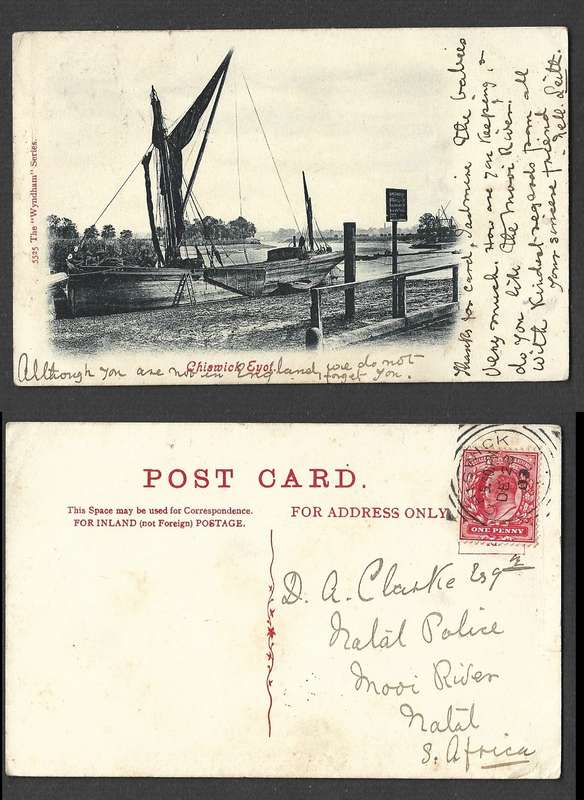 5325 The "Wyndham" Series.
Thanks for card, I admire the babies
very much. How are you keeping, &
do you like the Mooi River.
With kindest regards from all
your sincere friend
Nell.
Chiswick Eyot.
Although you are not in England, we do not
forget you.
POST CARD.
This Space may be used for Correspondence.
FOR INLAND (not Foreign) POSTAGE.
FOR ADDRESS ONLY
ONE PENNY
D. A. Clarke Esqre
Natal Police
Mooi River
Natal
S. Africa